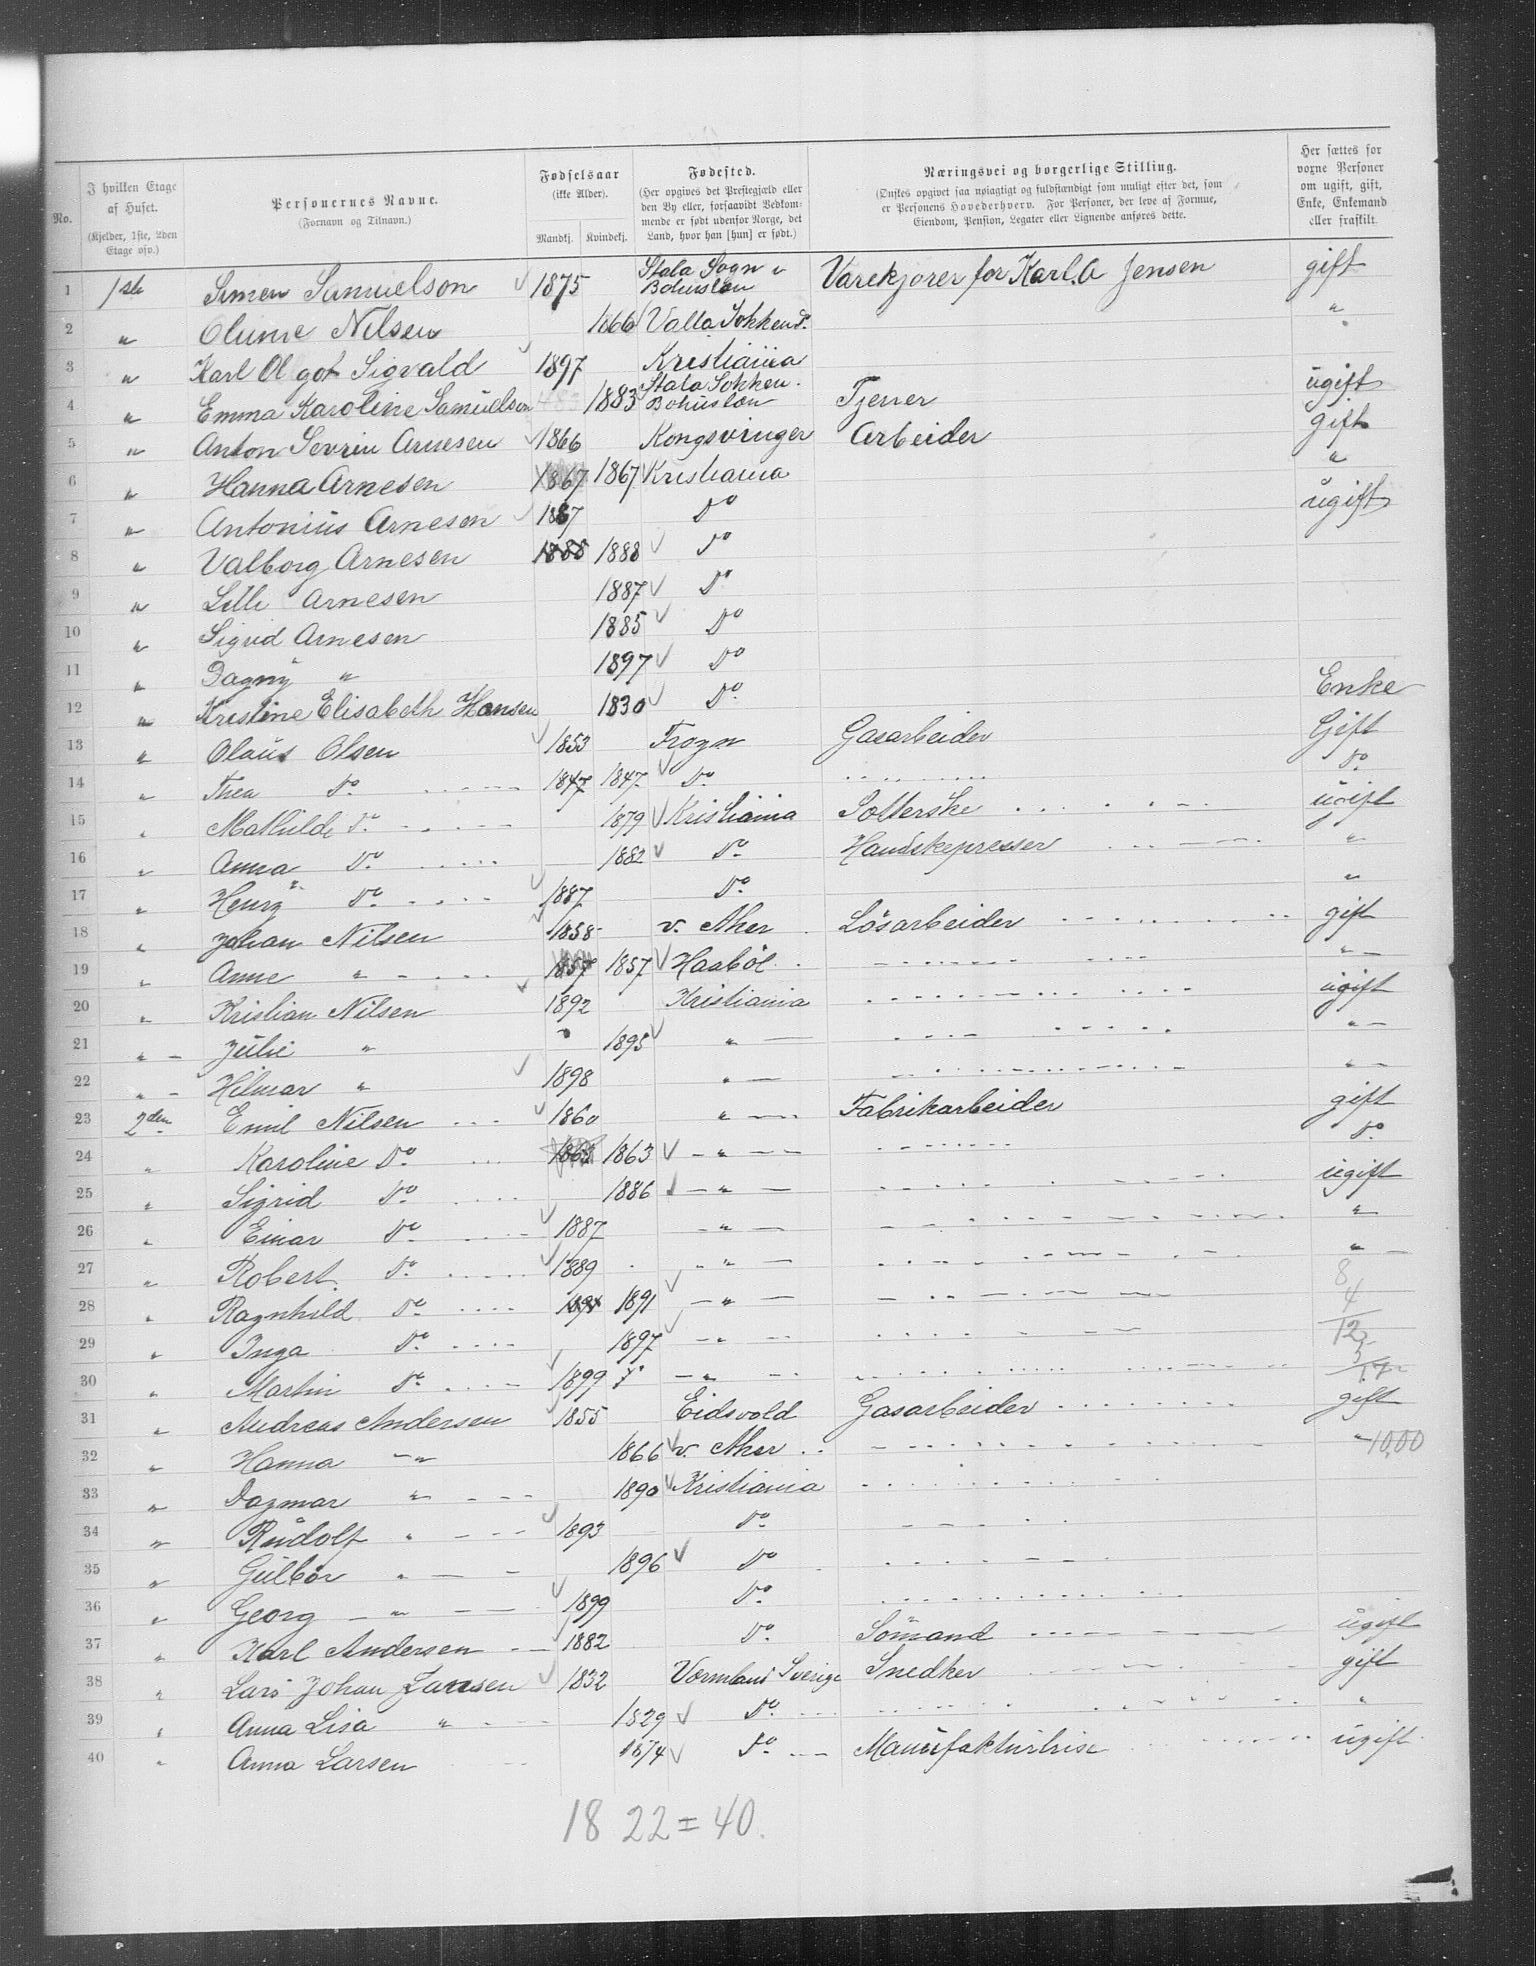 No.
I hvilken Etage af Huset. (Kjelder, 1ste, 2den Etage osv.)
Personernes Navne. (Fornavn og Tilnavn.)
Fødselsaar (ikke Alder). Mandkj. Kvindekj.
Fødested. (Her opgives det Prestegjæld eller den By eller, forsaavidt Vedkommende er født udenfor Norge, det Land, hvor han [hun] er født.)
Næringsvei og borgerlige Stilling. (Ønskes opgivet saa nøiagtigt og fuldstændigt som muligt efter det, som er Personens Hovederhverv. For Personer, der leve af Formue, Eiendom, Pension, Legater eller Lignende anføres dette.
Her sættes for voxne Personer om ugift, gift, Enke, Enkemand eller fraskilt.
1 1ste Simen Samuelson 1875 Stala Sogn Bohuslæn Varekjører for Karl. A Jensen gift
2 " Olume Nilsen 1866 Valla Sokken "
3 " Karl Olgot Sigvald 1897 Kristiania
4 " Emma Karoline Samuelson 1883 Stala Sokken. Bohuslæn Tjener ugift
5 " Anton Sevrin Arnesen 1866 Kongsvinger Arbeider gift
6 " Hanna Arnesen 1867 1867 Kristiania "
7 " Antonius Arnesen 1887 Do ugift
8 " Valborg Arnesen 1888 1888 Do
9 " Lilli Arnesen 1887 Do
10 " Sigrid Arnesen 1885 Do
11 " Dagny " 1897 Do
12 " Kristine Elisabeth Hansen 1830 Do Enke
13 " Olaus Olsen 1853 Frogn Gasarbeider Gift
14 " Thea Do 1847 1847 Do Do
15 " Mathilde Do 1879 Kristiania ugift
16 " Anna Do 1882 Do Handskepresser "
17 " Henry Do 1887 Do "
18 " Johan Nilsen 1858 v. Aker Løsarbeider gift
19 " Anne " 1857 1857 Haabøl "
20 " Kristian Nilsen 1892 Kristiania ugift
21 " Julie " 1895 " "
22 " Hilmar " 1898 " "
23 2den Emil Nilsen 1860 " Fabrikarbeider gift
24 " Karoline Do 1863 1863 " Do
25 " Sigrid Do 1886 " ugift
26 " Einar Do 1887 " "
27 " Robert Do 1889 " "
28 " Ragnhild Do 1891 1891 " 8 4
29 " Inga Do 1897 " 12
30 " Martin Do 1899 "
31 " Andreas Andersen 1855 Eidsvold Gasarbeider gift
32 " Hanna " 1866 v. Aker " 10,00
33 " Dagmar " 1890 Kristiania
34 " Rudolf " 1893 Do
35 " Gulbor " 1896 Do
36 " Georg " 1899 Do
37 " Karl Andersen 1882 Do Sømand ugift
38 " Lars Johan Larsen 1832 Vermland Sverige Snedker gift
39 " Anna Lisa " 1829 Do "
40 " Anna Larsen 1874 Do ugift
18 22 = 40.